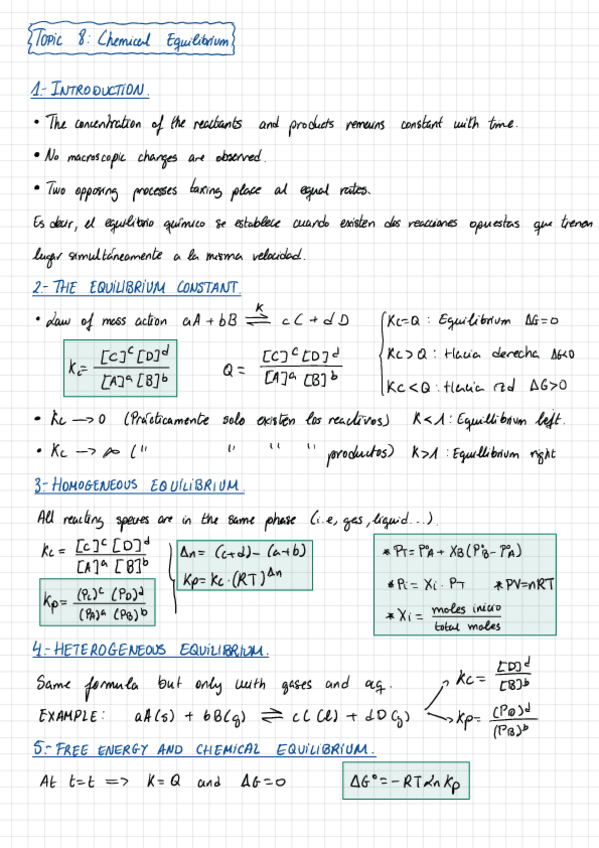 Topic 8: Chemical Equilibrium
1.- INTRODUCTION.
• The concentration of the reactants and products remains constant with time.
• No macroscopic changes are observed.
• Two opposing processes taking place at equal rates.
Es decir, el equilibrio químico se establece cuando existen dos reacciones opuestas que tienen
lugar simultáneamente a la misma velocidad.
2.- THE EQUILIBRIUM CONSTANT.
• Law of mass action aA + bB ⇌ cC + dD
K
Kc = [C]^c [D]^d / [A]^a [B]^b
Q = [C]^c [D]^d / [A]^a [B]^b
Kc=Q : Equilibrium ΔG=0
Kc>Q : Hacia derecha ΔG<0
Kc<Q : Hacia izd ΔG>0
• Kc → 0 (Prácticamente solo existen los reactivos) K<1 : Equilibrium left.
• Kc → ∞ (" " " " productos) K>1 : Equilibrium right
3.- HOMOGENEOUS EQUILIBRIUM.
All reacting species are in the same phase (i.e, gas, liquid...).
Kc = [C]^c [D]^d / [A]^a [B]^b
Kp = (Pc)^c (PD)^d / (PA)^a (PB)^b
Δn = (c+d) - (a+b)
Kp = Kc · (RT)^Δn
* PT = P°A + XB (P°B - P°A)
* Pi = Xi · PT * PV=nRT
* Xi = moles inicio / total moles
4.- HETEROGENEOUS EQUILIBRIUM.
Same formula but only with gases and aq.
EXAMPLE: aA(s) + bB(g) ⇌ cC(l) + dD(g)
Kc = [D]^d / [B]^b
Kp = (PD)^d / (PB)^b
5.- FREE ENERGY AND CHEMICAL EQUILIBRIUM.
At t=t => K=Q and ΔG=0
ΔG° = -RT Ln Kp